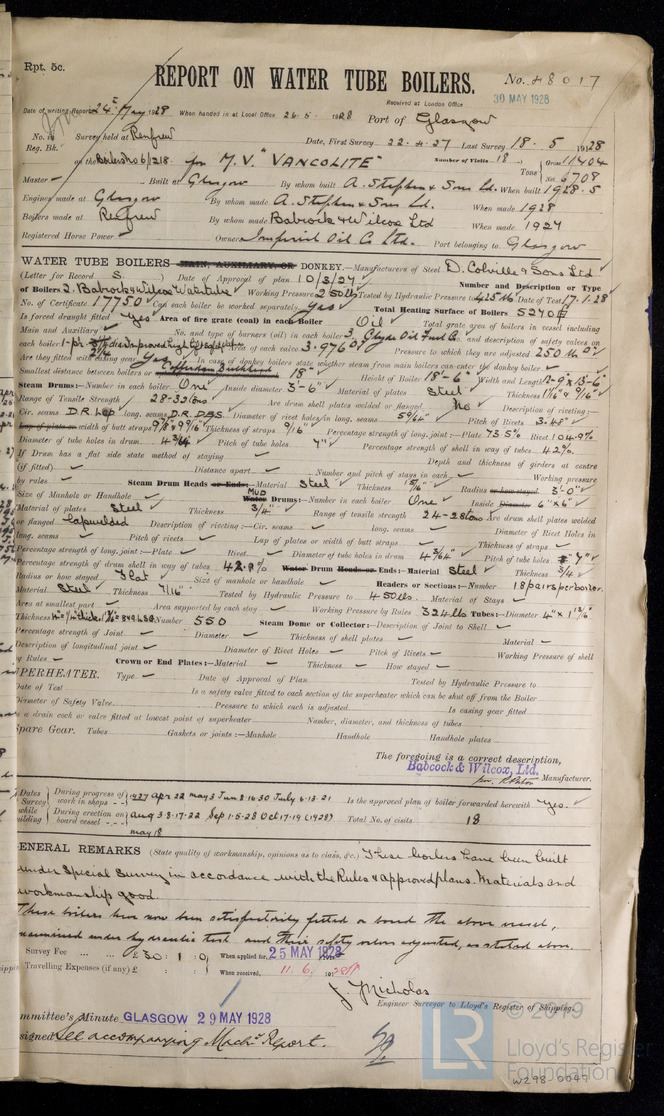 Rpt. 5c.
REPORT ON WATER TUBE BOILERS.
No. 48017
Received at London Office
30 MAY 1928
Date of writing Report 24th May 1928 When handed in at Local Office 26.5.1928 Port of Glasgow
No. in Survey held at Renfrew Date, First Survey 22.4.27 Last Survey 18.5.1928
Reg. Bk. Number of Visits 18
on the Boilers No 6/1218 for M.V. "VANCOLITE" Tons Gross 11404 Net 6708
Master Built at Glasgow By whom built A. Stephen & Sons Ld. When built 1928.5
Engines made at Glasgow By whom made A. Stephen & Sons Ld. When made 1928
Boilers made at Renfrew By whom made Babcock & Wilcox Ltd When made 1927
Registered Horse Power Owners Imperial Oil Co Ltd. Port belonging to Glasgow
WATER TUBE BOILERS MAIN, AUXILIARY, OR DONKEY.—Manufacturers of Steel D. Colville & Sons Ltd
(Letter for Record S.) Date of Approval of plan 10/3/27 Number and Description or Type
of Boilers 2. Babcock & Wilcox Watertube Working Pressure 250 lbs Tested by Hydraulic Pressure to 425 lbs Date of Test 17.1.28
No. of Certificate 17750 Can each boiler be worked separately yes Total Heating Surface of Boilers 5270
Is forced draught fitted yes Area of fire grate (coal) in each Boiler Oil Total grate area of boilers in vessel including
Main and Auxiliary No. and type of burners (oil) in each boiler 3 Clyde Oil Fuel Co. and description of safety valves on
each boiler 1-pr Area of each valve 3.976 Pressure to which they are adjusted 250 lbs
Are they fitted with easing gear Yes In case of donkey boilers state whether steam from main boilers can enter the donkey boiler
Smallest distance between boilers or 18" Height of Boiler 18'-6" Width and Length
Steam Drums:—Number in each boiler One Inside diameter 3'-6" Material of plates Steel Thickness 11/16" & 9/16"
Range of Tensile Strength 28-32 tons Are drum shell plates welded or flanged No Description of riveting:—
Cir. seams D.R Lap long. seams D.R. D.B.S. Diameter of rivet holes in long. seams 59/64" Pitch of Rivets 3.48"
Lap of plate or width of butt straps Thickness of straps 9/16" Percentage strength of long. joint:—Plate 73.5% Rivet 104.9%
Diameter of tube holes in drum 4 3/64" Pitch of tube holes 7" Percentage strength of shell in way of tubes 42%
If Drum has a flat side state method of staying Depth and thickness of girders at centre
(if fitted) Distance apart Number and pitch of stays in each Working pressure
by rules Steam Drum Heads or Ends:—Material Steel Thickness 15/16" Radius or how stayed 3'-0"
Size of Manhole or Handhole MUD Water Drums:—Number in each boiler One Inside Diameter 6" x 6"
Material of plates Steel Thickness 3/4" Range of tensile strength 24-28 tons Are drum shell plates welded
or flanged Lapwelded Description of riveting:—Cir. seams long. seams Diameter of Rivet Holes in
long. seams Pitch of rivets Lap of plates or width of butt straps Thickness of straps
Percentage strength of long. joint:—Plate Rivet Diameter of tube holes in drum 4 3/64" Pitch of tube holes 7"
Percentage strength of drum shell in way of tubes 42.9% Water Drum Heads or Ends: Material Steel Thickness 3/4
Radius or how stayed Flat Size of manhole or handhole Headers or Sections:—Number 18 pairs per boiler
Material Steel Thickness 7/16" Tested by Hydraulic Pressure to 450 lbs. Material of Stays
Area at smallest part Area supported by each stay Working Pressure by Rules 324 lbs Tubes:—Diameter 4" x 1 13/16"
Thickness Number 550 Steam Dome or Collector:—Description of Joint to Shell
Percentage strength of Joint Diameter Thickness of shell plates Material
Description of longitudinal joint Diameter of Rivet Holes Pitch of Rivets Working Pressure of shell
by Rules Crown or End Plates:—Material Thickness How stayed
UPERHEATER. Type Date of Approval of Plan Tested by Hydraulic Pressure to
Date of Test Is a safety valve fitted to each section of the superheater which can be shut off from the Boiler
Diameter of Safety Valve Pressure to which each is adjusted Is easing gear fitted
a drain cock or valve fitted at lowest point of superheater Number, diameter, and thickness of tubes
Spare Gear. Tubes Gaskets or joints:—Manhole Handhole Handhole plates
The foregoing is a correct description,
Babcock & Wilcox, Ltd. Manufacturer.
Dates Survey while building During progress of work in shops 1927 Apr 22 May 3 Jun 8.16.30 July 6.13.21 Is the approved plan of boiler forwarded herewith Yes.
During erection on board vessel Aug 3.8.17.22 Sep 1.5.28 Oct 17.19 (1928) May 18 Total No. of visits 18
GENERAL REMARKS (State quality of workmanship, opinions as to class, &c.) These boilers have been built
under Special Survey in accordance with the Rules & approved plans. Materials and
workmanship good.
These boilers have now been satisfactorily fitted on board the above vessel,
examined under hydraulic test and their safety valves adjusted, as stated above.
Survey Fee £30 : 1 : 0 When applied for, 25 MAY 1928
Travelling Expenses (if any) £ : : When received, 11.6.1928
J. Nicholas
Engineer Surveyor to Lloyd's Register of Shipping.
ommittee's Minute GLASGOW 29 MAY 1928
signed See accompanying Machy Report.
© 2019
LR
Lloyd's Register
Foundation
W298-0047